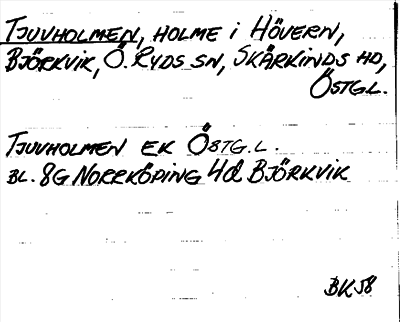 TJUVHOLMEN, HOLME i HÖVERN,
BJÖRKVIK, Ö. RYDS SN, SKÄRKINDS HD,
ÖSTGL.
TJUVHOLMEN EK ÖSTG.L.
BL. 8G NORRKÖPING 4d BJÖRKVIK
BK 58